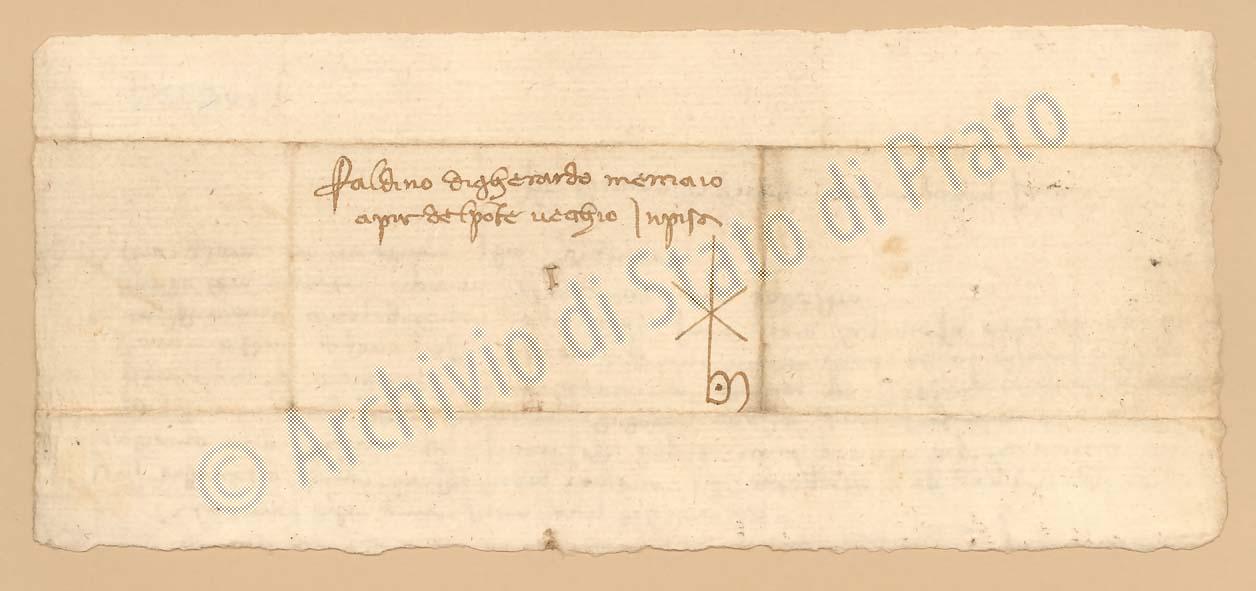 Faldino di gherardo merciaio
a pie del pote vecchio In pisa
© Archivio di Stato di Prato